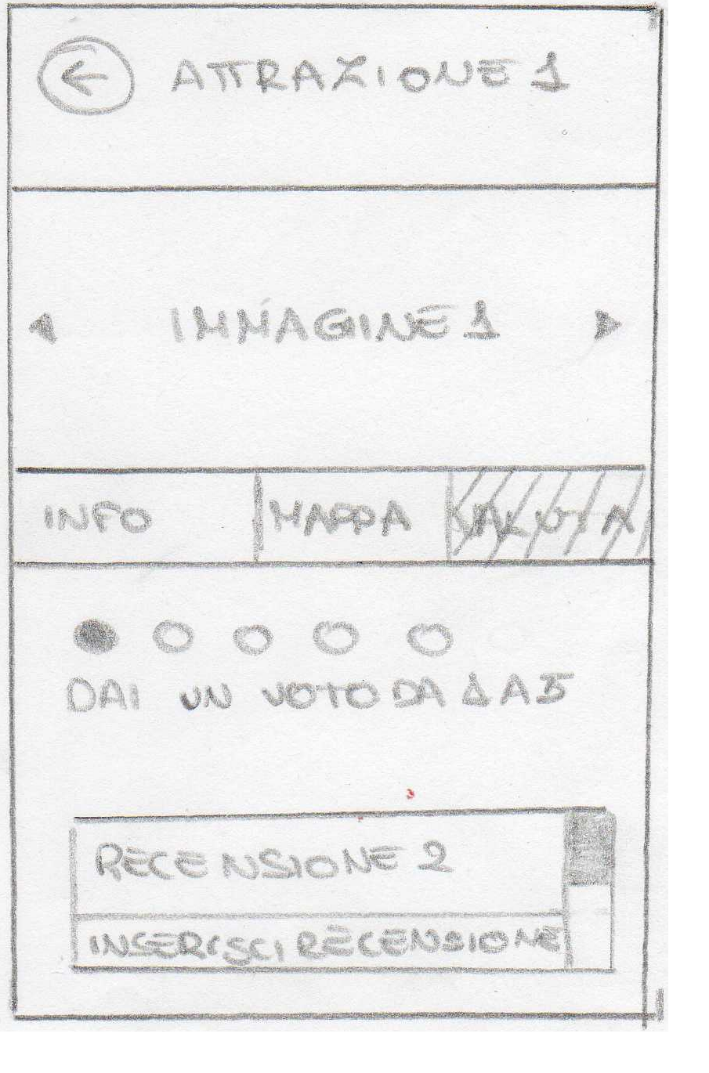 ATTRAZIONE 1
IMMAGINE 1
INFO MAPPA VALUTA
DAI UN VOTO DA 1 A 5
RECENSIONE 2
INSERISCI RECENSIONE